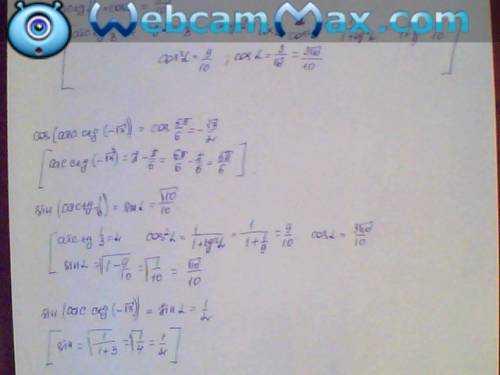 WebcamMax.com
cos²α = 9/10 ; cosα = 3/√10 = 3√10/10
cos(arcctg(-√3)) = cos 5π/6 = -√3/2
[arcctg(-√3) = π - π/6 = 6π/6 - π/6 = 5π/6]
sin(arctg 1/3) = sinα = √10/10
[arctg 1/3 = α cos²α = 1/(1+tg²α) = 1/(1+1/9) = 9/10 cosα = 3√10/10
sinα = √(1-9/10) = √(1/10) = √10/10
sin(arcctg(-√3)) = sinα = 1/2
[sin = √(1/(1+3)) = √(1/4) = 1/2]